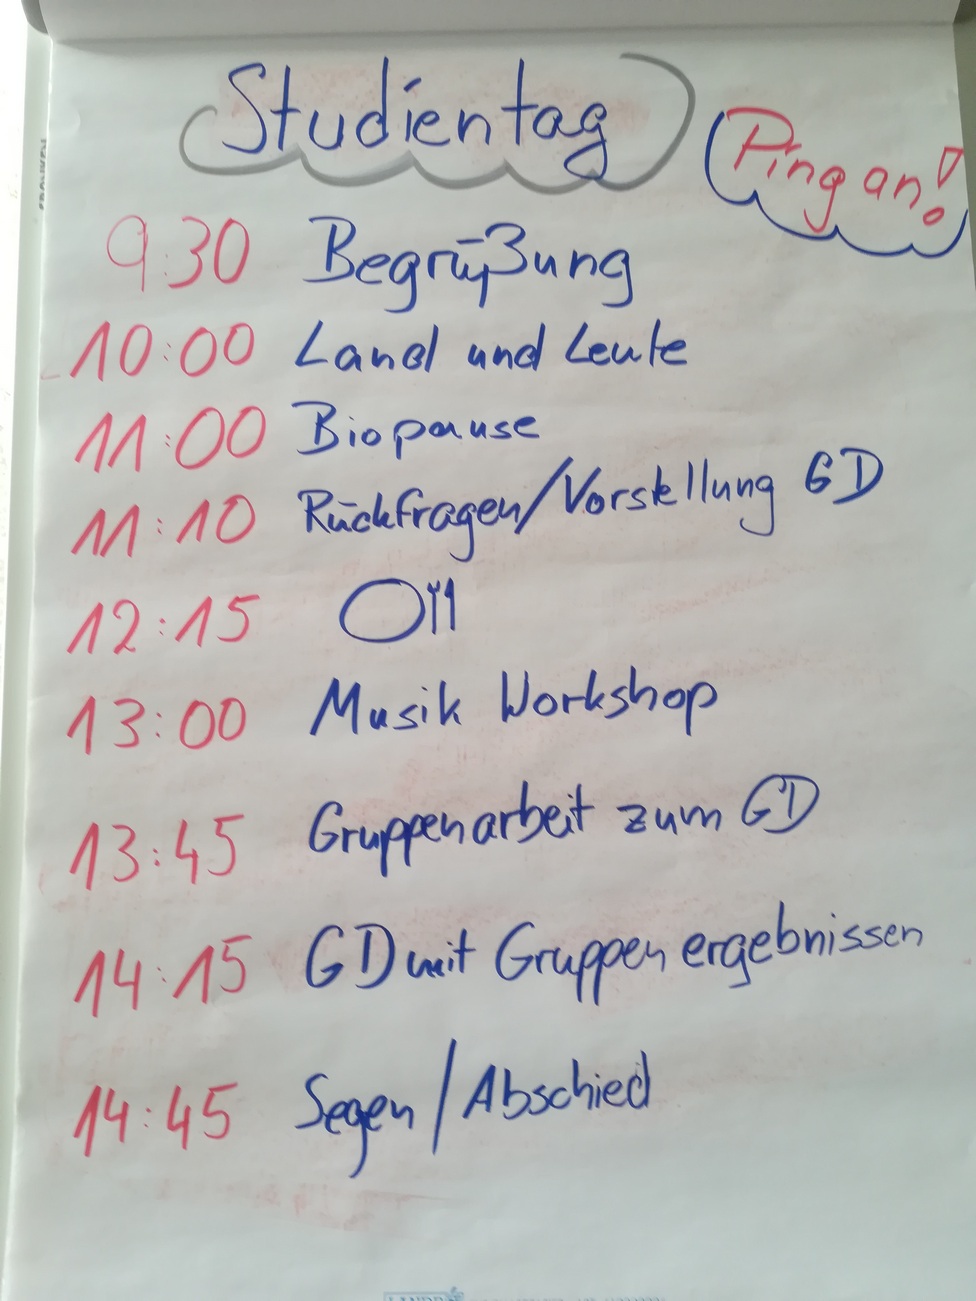 Studientag
Ping an!
9:30 Begrüßung
10:00 Land und Leute
11:00 Biopause
11:10 Rückfragen/Vorstellung GD
12:15
13:00 Musik Workshop
13:45 Gruppenarbeit zum GD
14:15 GD mit Gruppenergebnissen
14:45 Segen/Abschied